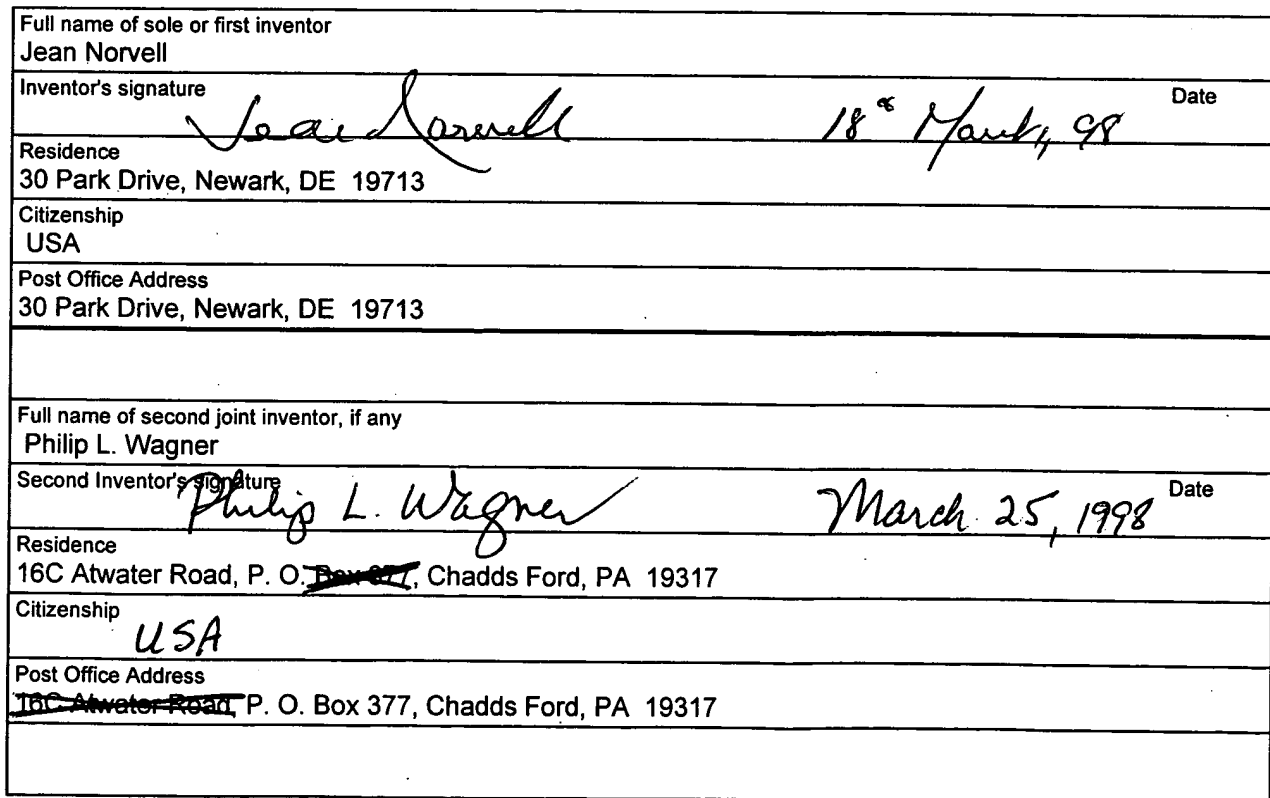 Full name of sole or first inventor
Jean Norvell
Inventor's signature Jean Norvell 18th March, 98 Date
Residence
30 Park Drive, Newark, DE 19713
Citizenship
USA
Post Office Address
30 Park Drive, Newark, DE 19713
Full name of second joint inventor, if any
Philip L. Wagner
Second Inventor's signature Philip L. Wagner March 25, 1998 Date
Residence
16C Atwater Road, P. O. Box 377, Chadds Ford, PA 19317
Citizenship
USA
Post Office Address
16C Atwater Road, P. O. Box 377, Chadds Ford, PA 19317